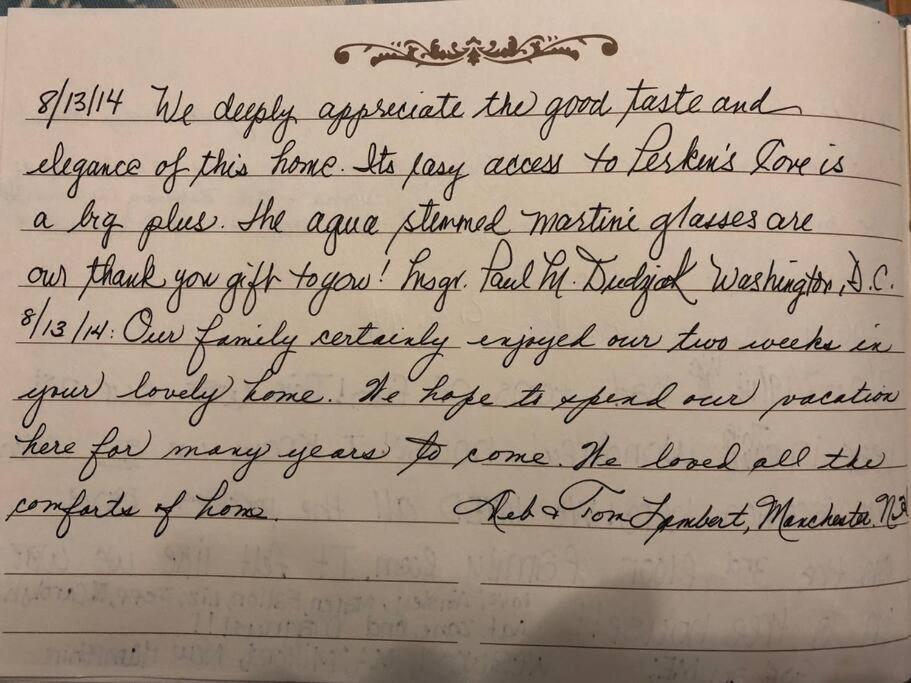 8/13/14 We deeply appreciate the good taste and
elegance of this home. Its easy access to Perkin's Cove is
a big plus. The aqua stemmed martini glasses are
our thank you gift to you! Msgr. Paul M. Dudziak Washington, D.C.
8/13/14: Our family certainly enjoyed our two weeks in
your lovely home. We hope to spend our vacation
here for many years to come. We loved all the
comforts of home. Deb & Tom Lambert, Manchester, NH